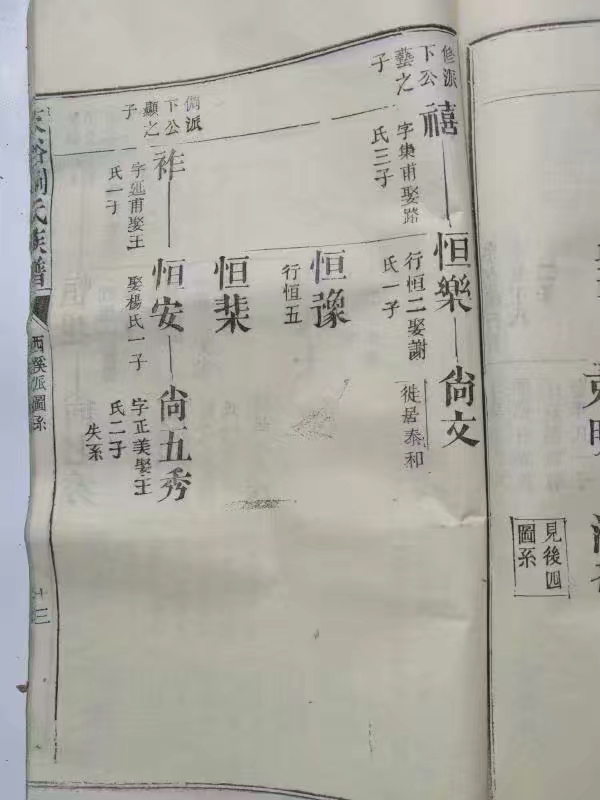 修派
下公
藝之
子
禧
字集甫娶路
氏三子
恒樂
行恒二娶謝
氏一子
尙文
徙居泰和
恒豫
行恒五
恒棐
倜派
下公
顯之
子
祚
字延甫娶王
氏一子
恒安
娶楊氏一子
尙五秀
字正美娶王
氏二子
失系
劉氏族譜
西溪派圖系
廿三
見後四
圖系